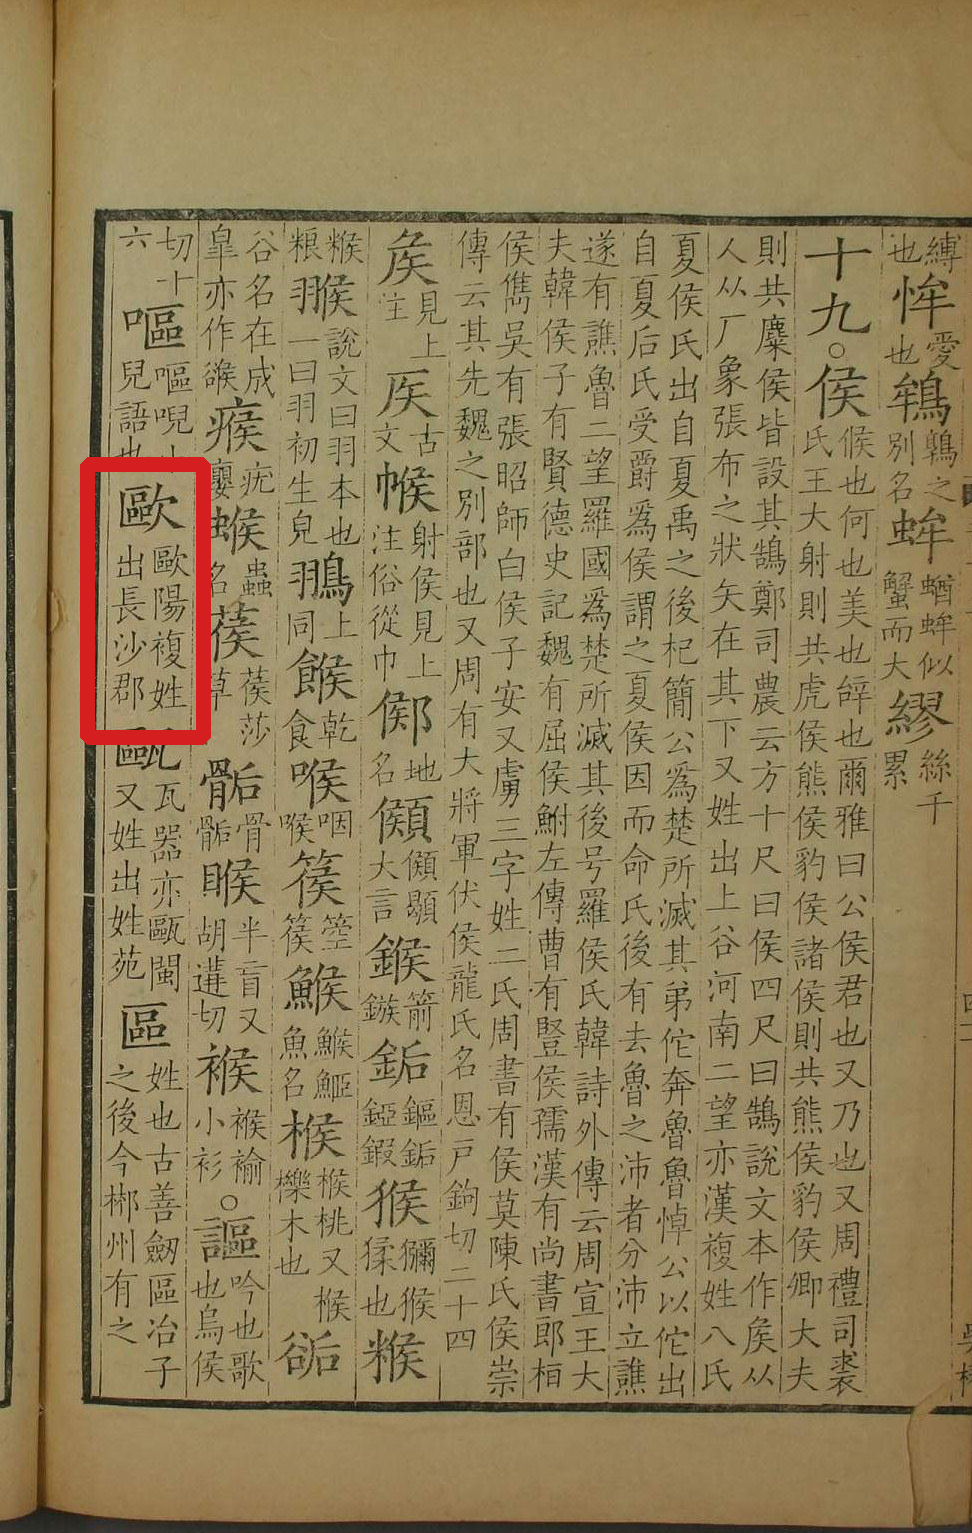 縛也恈愛也鴾鶉之別名蛑蝤蛑似蟹而大繆絲千累
十九。侯候也何也美也辝也爾雅曰公侯君也又乃也又周禮司裘氏王大射則共虎侯熊侯豹侯諸侯則共熊侯豹侯卿大夫
則共麋侯皆設其鵠鄭司農云方十尺曰侯四尺曰鵠說文本作矦从人从厂象張布之狀矢在其下又姓出上谷河南二望亦漢複姓八氏
夏侯氏出自夏禹之後杞簡公爲楚所滅其弟佗奔魯魯悼公以佗出自夏后氏受爵爲侯謂之夏侯因而命氏後有去魯之沛者分沛立譙
遂有譙魯二望羅國爲楚所滅其後号羅侯氏韓詩外傳云周宣王大夫韓侯子有賢德史記魏有屈侯鮒左傳曹有豎侯獳漢有尚書郎栢
侯儁吳有張昭師白侯子安又虜三字姓二氏周書有侯莫陳氏侯崇傳云其先魏之別部也又周有大將軍伏侯龍氏名恩戸鉤切二十四
矦見上注𥎦古文帿射侯見上注俗從巾鄇地名大言鍭箭鏃銗鏂銗錏鍜猴獼猴猱也糇
糇粮翭說文曰羽本也一曰羽初生皃同上餱乾食喉咽喉篌箜篌鯸魚名㮢㮢桃又㮢櫟木也
谷名在成皐亦作瘊疣蟲名葔葔莎草骺骨骺睺半盲又胡遘切小衫。謳吟也歌也烏侯
切十六嘔嘔唲小兒語也歐歐陽複姓出長沙郡甌瓦器亦甌閩又姓出姓苑區姓也古善劒區冶子之後今郴州有之